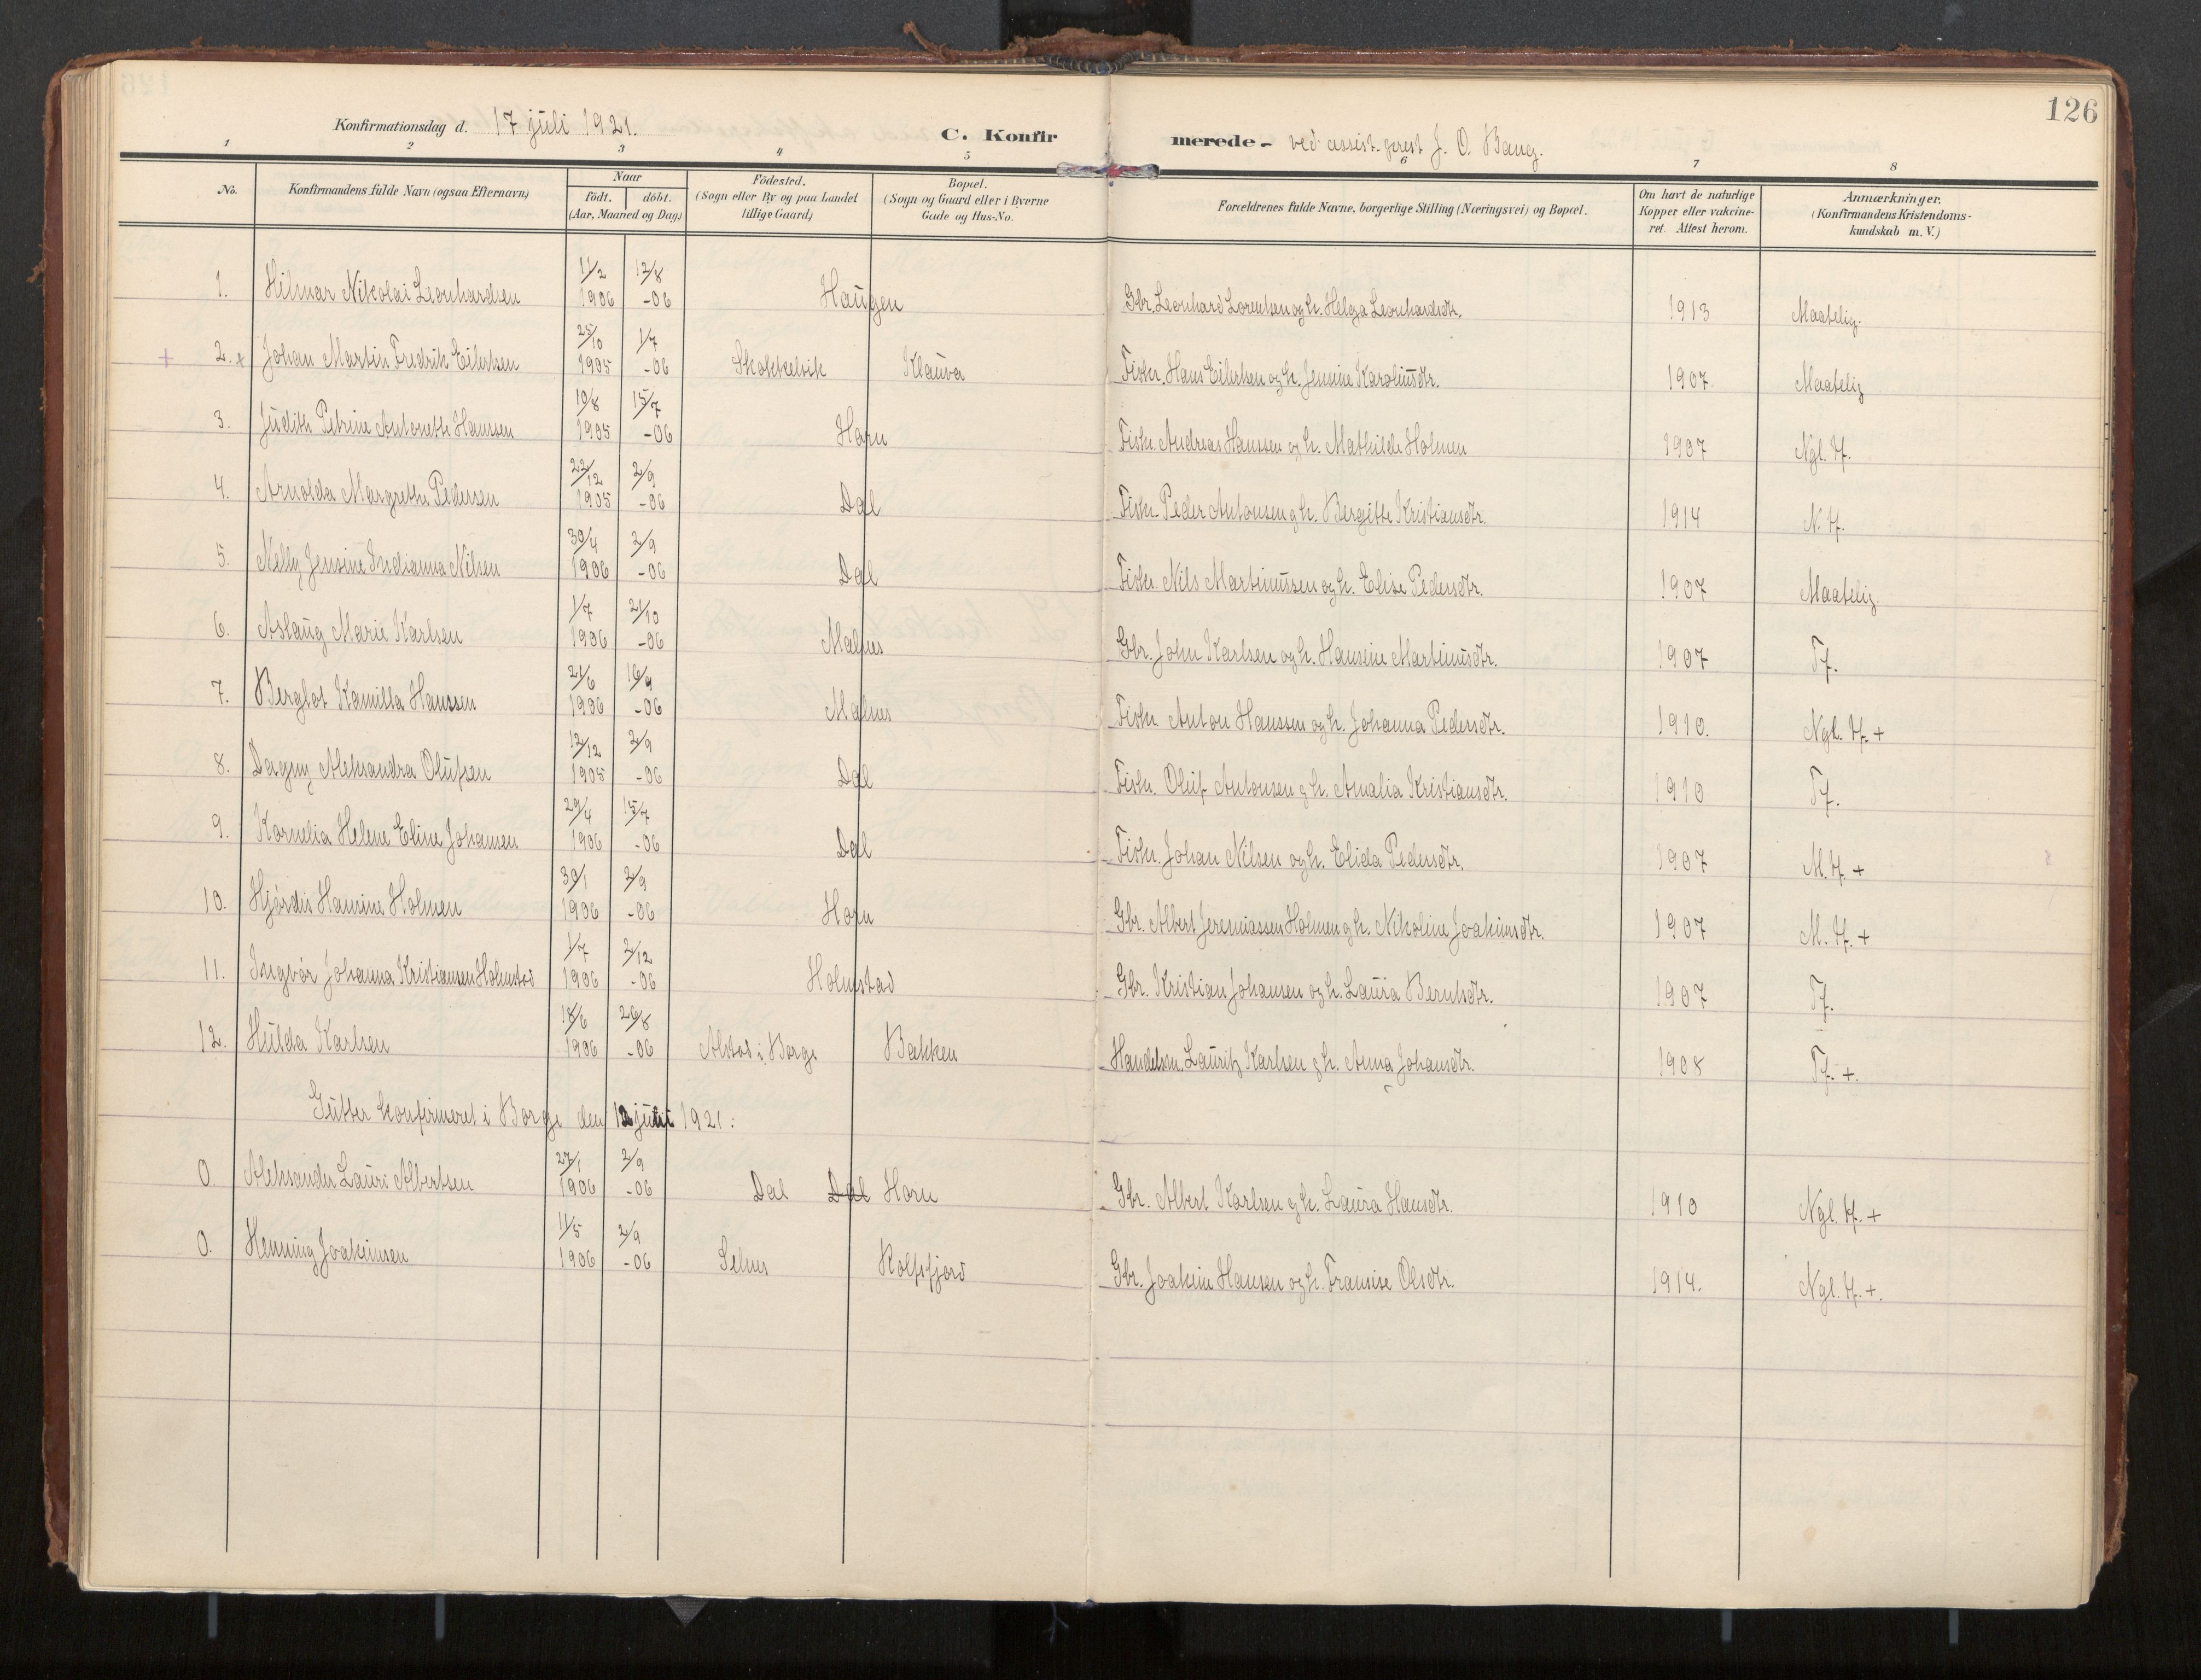 126
Konfirmationsdag d. 17 juli 1921. C. Konfir merede - ved assist. prest J. O. Bang.
1 2 3 4 5 6 7 8
No. Konfirmandens fulde Navn (ogsaa Efternavn) Naar födt. döbt. (Aar, Maaned og Dag) Födested. (Sogn eller By og paa Landet tillige Gaard) Bopæl. (Sogn og Gaard eller i Byerne Gade og Hus-No. Forældrenes fulde Navne, borgerlige Stilling (Næringsvei) og Bopæl. Om havt de naturlige Kopper eller vakcineret. Attest herom. Anmærkninger. (Konfirmandens Kristendomskundskab m. V.)
1. Hilmar Nikolai Leonhardsen 11/2 1906 12/8 -06 Haugen Gbr. Leonhard Lorentsen og h. Helga Leonhardsdtr. 1913 Maatelig.
+ 2. x Johan Martin Fredrik Eilertsen 25/10 1905 1/7 -06 Skokkelvik Klauva Fisker. Hans Eilertsen og h. Jensine Karolinsdtr. 1907. Maatelig
3. Judith Petrine Antonette Hanssen 10/8 1905 15/7 -06 Horn Fisker. Andreas Hanssen og h. Mathilde Holmen 1907 Ngl. Tf.
4. Arnolda Margrethe Pedersen 22/12 1905 2/9 -06 Dal Fisker. Peder Antonsen og h. Bergitte Kristiansdtr. 1914 N. Tf.
5. Nelly Jensine Indianna Nilsen 30/4 1906 2/9 -06 Dal Fisker. Nils Martinussen og h. Elise Pedersdtr. 1907 Maatelig.
6. Aslaug Marie Karlsen 1/7 1906 21/10 -06 Malnes Gbr. John Karlsen og h. Hansine Martinusdtr. 1907 Tf.
7. Berglot Kamilla Hanssen 21/6 1906 16/9 -06 Malnes Fisker Anton Hanssen og h. Johanna Pedersdtr. 1910. Ngl. Tf. +
8. Dagny Aleksandra Olufsen 12/12 1905 2/9 -06 Dal Fisker. Oluf Antonsen og h. Amalia Kristiansdtr. 1910 Tf.
9. Kornelia Helene Eline Johansen 29/4 1906 15/7 -06 Dal Fisker. Johan Nilsen og h. Elida Pedersdtr. 1907 M. Tf. +
10. Hjördis Hansine Holmen 30/1 1906 2/9 -06 Horn Gbr. Albert Jeremiassen Holmen og h. Nikoline Joakimsdtr. 1907 M. Tf. +
11. Ingvör Johanna Kristiansen Holmstad 1/7 1906 2/12 -06 Holmstad Gbr. Kristian Johansen og h. Laura Berntsdtr. 1907 Tf.
12. Hulda Karlsen 18/6 1906 26/8 -06 Alstad i Borge Bakken Handelsm. Lauritz Karlsen og h. Anna Johansdtr. 1908 Tf. +.
Gutter konfirmeret i Borge den 12 juni 1921:
0. Aleksander Lauri Albertsen 27/1 1906 2/9 -06 Dal Dal Horn Gbr. Albert Karlsen og h. Laura Hansdtr. 1910 Ngl. Tf. +
0. Henning Joakimsen 11/5 1906 2/9 -06 Selnes Rolfsfjord Gbr. Joakim Hansen og h. Fransise Olsdtr. 1914. Ngl. Tf. +.